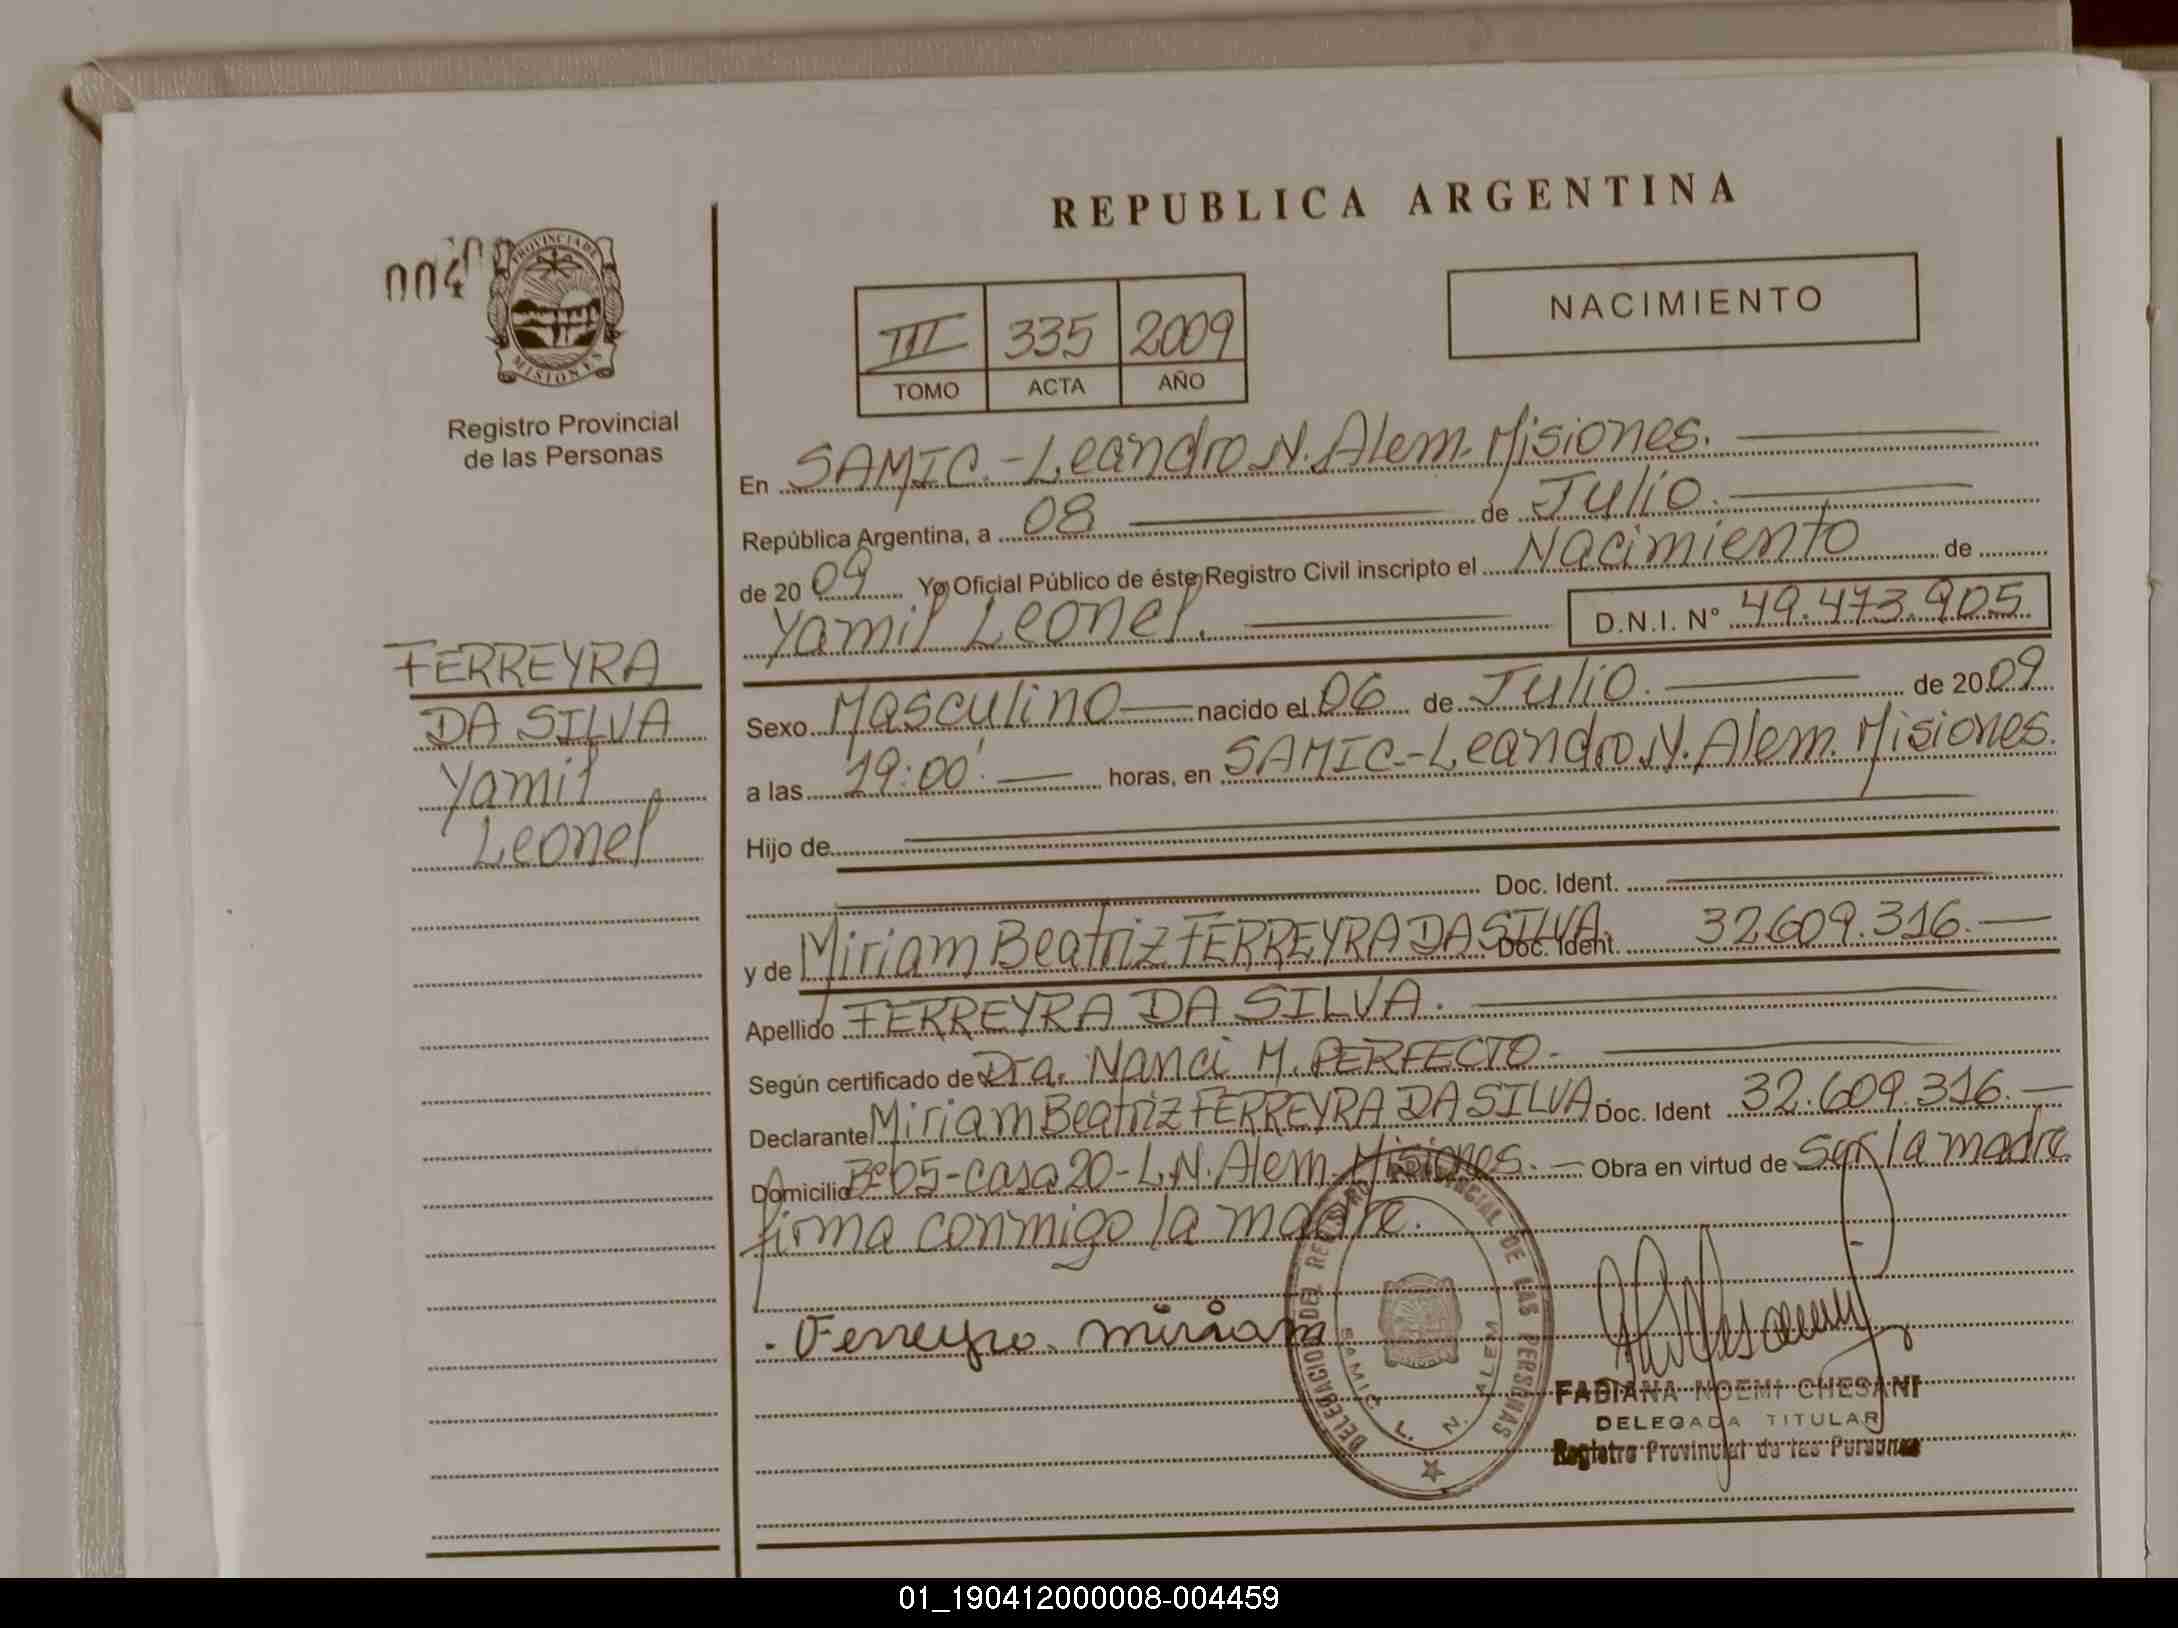 REPUBLICA ARGENTINA
004
PROVINCIA DE
MISIONES
Registro Provincial
de las Personas
III 335 2009
TOMO ACTA AÑO
NACIMIENTO
En SAMIC.-Leandro N. Alem. Misiones.
República Argentina, a 08 de Julio.
de 2009 Yo Oficial Público de éste Registro Civil inscripto el Nacimiento de
Yamil Leonel. D.N.I. N° 49.473.905.
FERREYRA
DA SILVA
Yamil
Leonel
Sexo Masculino nacido el 06 de Julio. de 2009
a las 19:00'. horas, en SAMIC.-Leandro N. Alem. Misiones.
Hijo de
Doc. Ident.
y de Miriam Beatriz FERREYRA DA SILVA. Doc. Ident. 32.609.316.
Apellido FERREYRA DA SILVA.
Según certificado de Dra. Nanci M. PERFECTO.
Declarante Miriam Beatriz FERREYRA DA SILVA. Doc. Ident 32.609.316.
Domicilio Bº 05-casa 20-L.N. Alem. Misiones. Obra en virtud de ser la madre
firma conmigo la madre.
Ferreyra. miriam
DELEGACION DEL REGISTRO PROVINCIAL DE LAS PERSONAS
SAMIC L. N. ALEM
FABIANA NOEMI CHESANI
DELEGADA TITULAR
Registro Provincial de las Personas
01_190412000008-004459